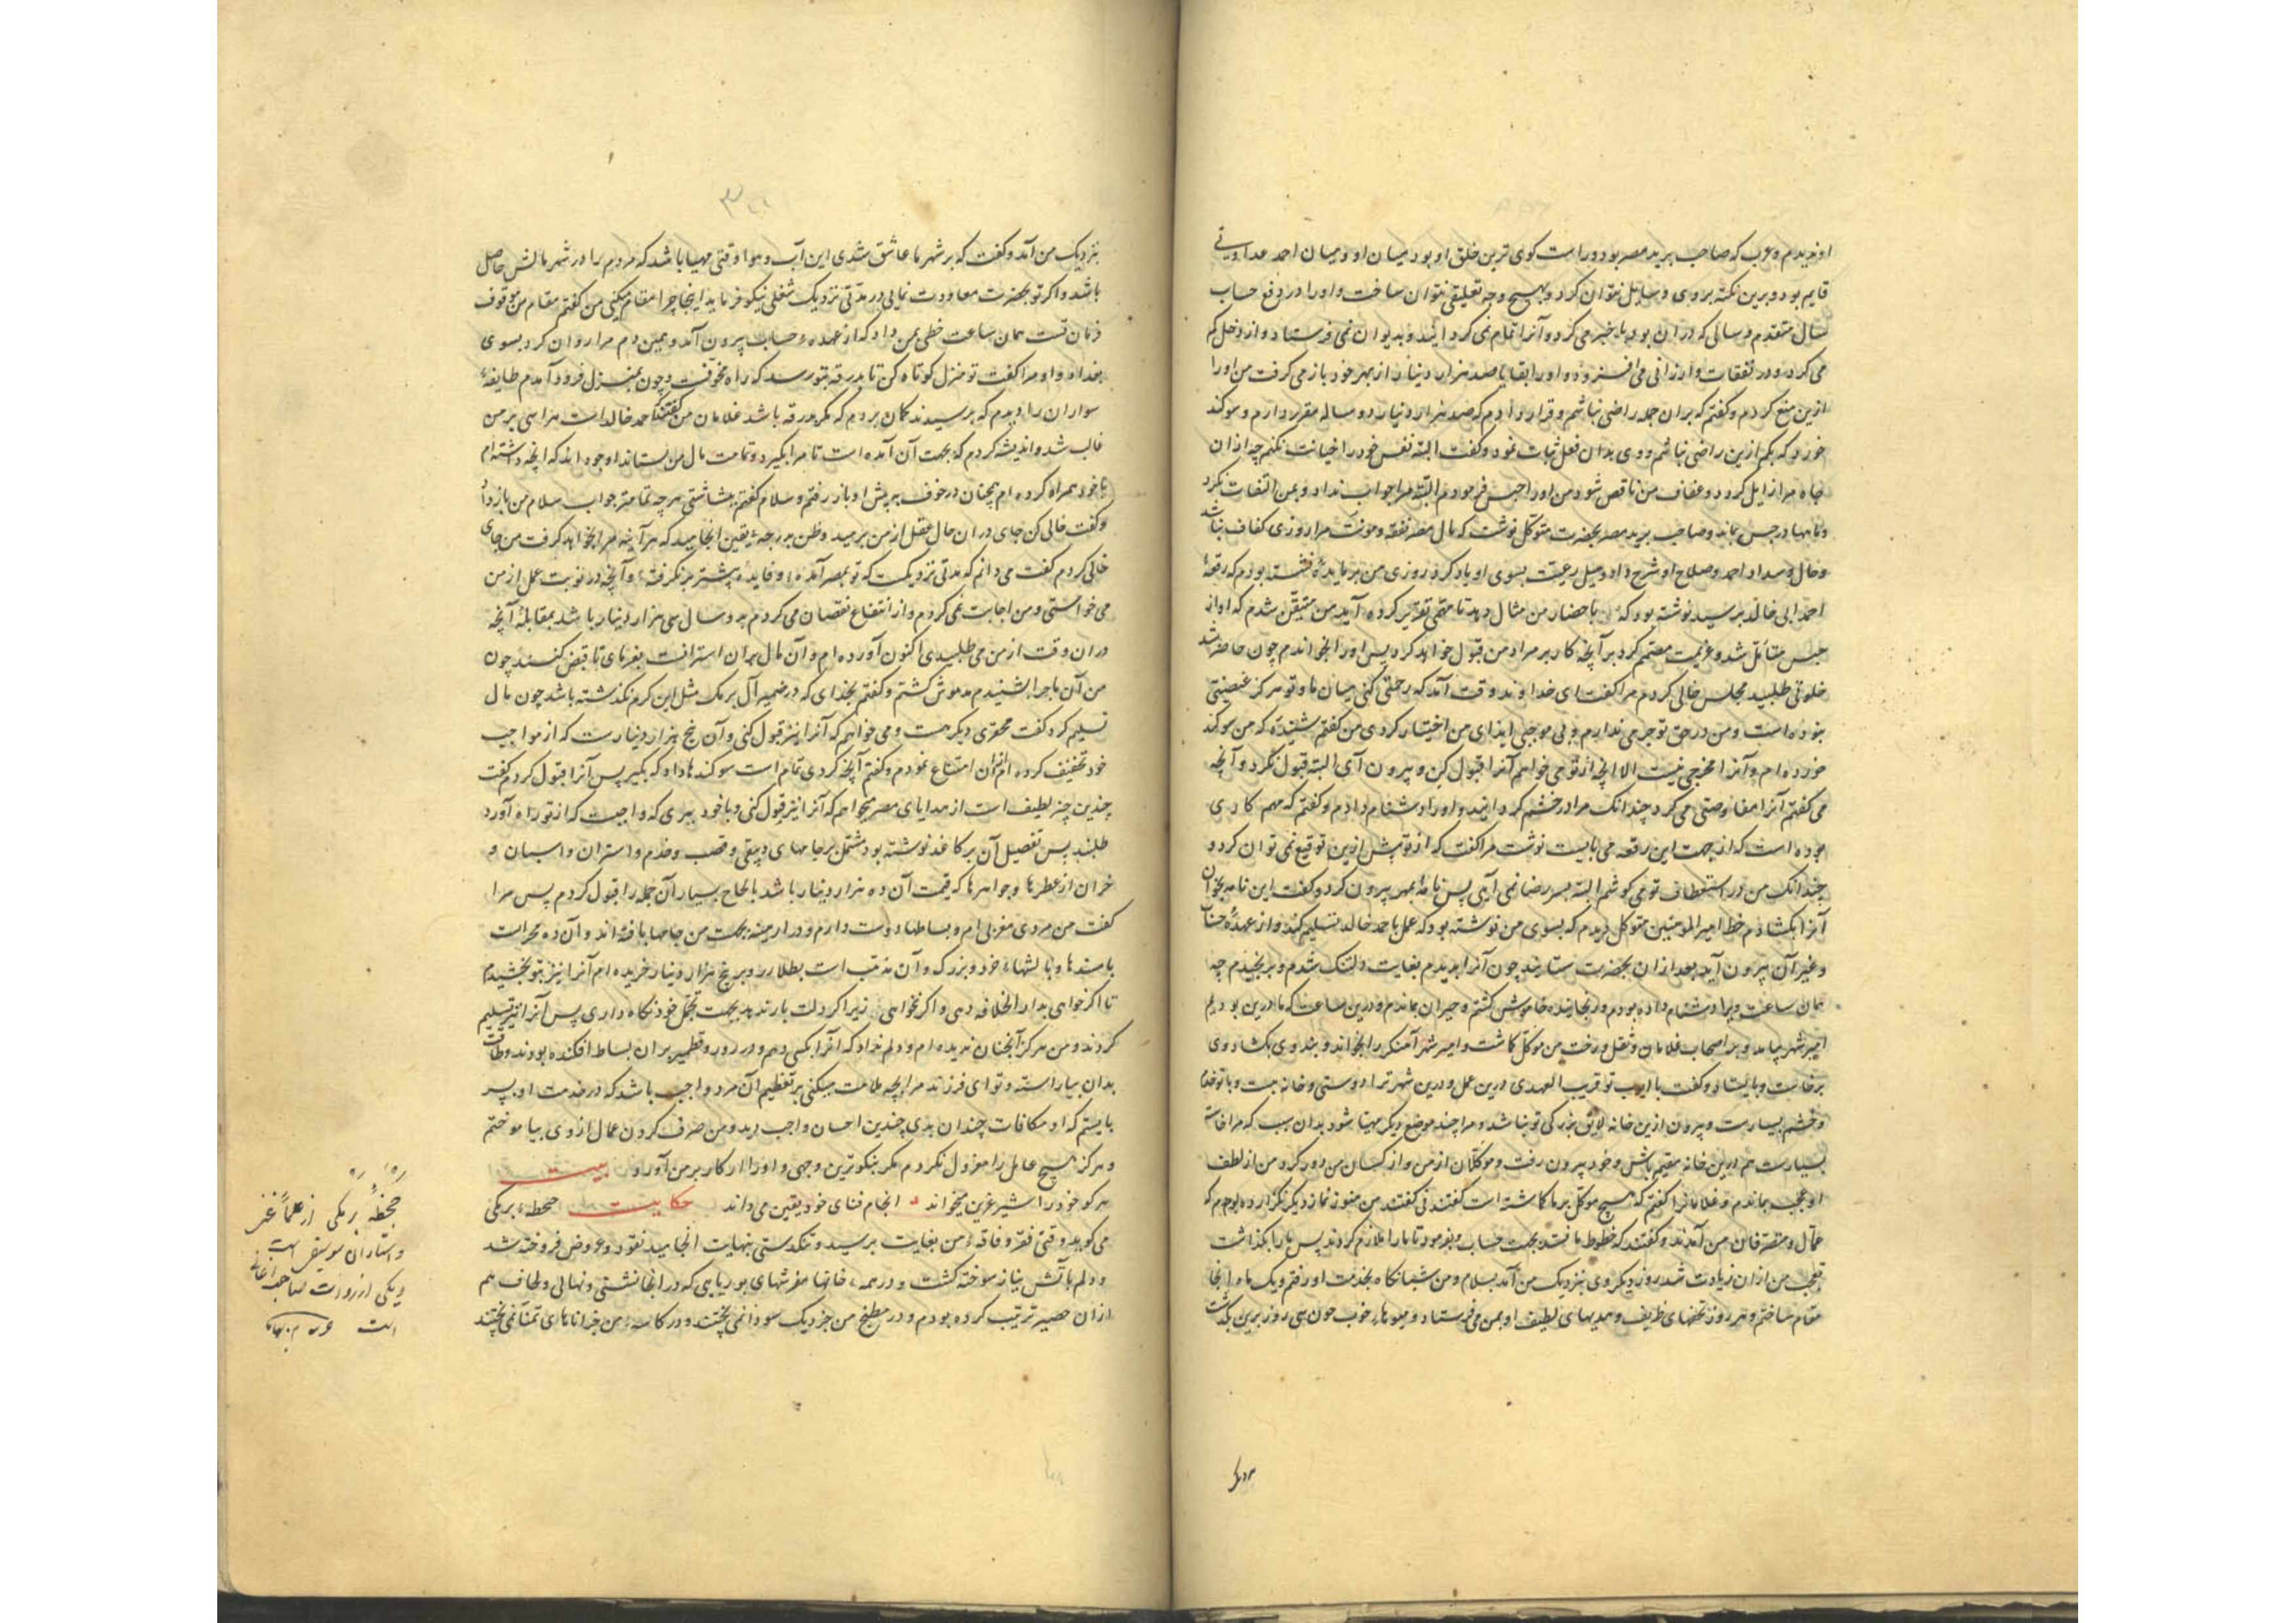 او ندیدم و عرب که صاحب برید مصر بود و راست کوی ترین خلق او بود میان او و میان احمد عداوتی
قایم بود و برین نکته بر وی وسایل نتوان کرد و بهیچ وجه تعلیقی نتوان ساخت و او را در رفع حساب
سال متقدم و سالی که در ان بود تاخیر می کرد و آنرا تمام نمی کردانید و بدیوان نمی فرستاد و از دخل کم
می کرد و در نفقات و ارزانی می افزود و او را بقایا صد هزار دینار از بهر خود باز می کرفت من او را
ازین منع کردم و کفتم که بران جمله راضی نباشم و قرار دادم که صد هزار دینار دو ساله مقرر دارم و سوکند
خورد که بکم ازین راضی نباشم و وی بدان فعل ثبات نمود و کفت البته نفس خود را خیانت نکنم چه از ان
جاه مرا زایل کردد و عفاف من ناقص شود من او را حبس فرمودم البته مرا جواب نداد و بمن التفات نکرد
و ماهها در حبس بماند و صاحب برید مصر بحضرت متوکل نوشت که مال مصر نفقه و مونت مرا روزی کفاف نباشد
و حال و سداد احمد و صلاح او شرح داد و میل رعیت بسوی او یاد کرد روزی من بر مایده نشسته بودم که رقعهٔ
احمد ابی خالد برسید نوشته بود که باحضار من مثال دهد تا مهمی تقریر کرده آید من متیقن شدم که او از
حبس متالم شد و عزیمت مصمم کرد بر آنچه کار بر مراد من قبول خواهد کرد پس او را بخواندم چون حاضر شد
خلوتی طلبید مجلس خالی کردم مرا کفت ای خداوند وقت آمد که رحمتی کنی میان ما و تو هرکز غصبیتی
نبوده است و من در حق تو جرمی ندارم و بی موجبی ایذای من اختیار کردی من کفتم شنیدهٔ که من سوکند
خورده ام و آنرا مخرجی نیست الا انچه از تو می خواهم آنرا قبول کن و بیرون آی البته قبول نکرد و آنچه
می کفتم آنرا مفاوضتی می کرد چندانک مرا در خشم کردانید و او را دشنام دادم و کفتم که مهم کاری
بوده است که از جهت این رقعه می بایست نوشت مرا کفت که از تو پیش ازین توقیع نمی توان کرد و
چندانک من در استعطاف تو می کوشم البته بسر رضا نمی آیی پس نامهٔ بمهر بیرون کرد و کفت این نامه بخوان
آنرا بکشادم خط امیر المومنین متوکل دیدم که بسوی من نوشته بود که عمل باحمد خالد تسلیم کند و از عهدهٔ حساب
و غیر آن بیرون آید بعد از ان بحضرت ستابد چون آنرا بدیدم بغایت دلتنک شدم و برنجیدم چه
همان ساعت ویرا دشنام داده بودم و رنجانیده خاموش کشتم و حیران بماندم و درین ساعت که ما درین بودیم
امیر شهر بیامد و بر اصحاب غلامان و ثقل و رخت من موکل کماشت و امیر شهر آهنکر را بخواند و بند وی بکشاد و وی
برخاست و بایستاد و کفت یا ایوب تو قریب العهدی درین عمل و درین شهر ترا دوستی و خانه نیست و با تو خدم
و حشم بسیارست و بیرون ازین خانه لایق بزرکی تو نباشد و مرا چند موضع دیکر مهیا شود بدان سبب که مرا خانه
بسیارست هم درین خانه مقیم باش و خود بیرون رفت و موکلان از من و از کسان من دور کرد من از لطف
او عجب بماندم و غلامانرا کفتم که هیچ موکل بر ما کماشته است کفتند نی کفتند من هنوز نماز دیکر نکزارده بودم که
عمال و متصرفان من آمدند و کفتند که خطوط ما بستد بجهت حساب و بفرمود تا ما را ملازم کردند پس ما را بکذاشت
تعجب من از ان زیادت شد روز دیکر وی بنزدیک من آمد بسلام و من شبانکاه بخدمت او رفتم و یک ماه انجا
مقام ساختم و هر روز تحفهای ظریف و هدیهای لطیف او بمن می فرستاد و میوهاء خوب چون سی روز برین بکذشت
بنزدیک من آمد و کفت که بر شهر ما عاشق شدی این آب و هوا وقتی مهیا باشد که مردم را در شهر مالش حاصل
باشد و اکر تو بحضرت معاودت نمایی در مدتی نزدیک شغلی نیکو فرماید اینجا چرا مقام می کنی من کفتم مقام من موقوف
فرمان تست همان ساعت خطی بمن داد که از عهدهٔ حساب بیرون آمد و همین دم مرا روان کرد بسوی
بغداد و او مرا کفت تو منزل کوتاه کن تا بدرقه بتو رسد که راه مخوفست و چون بمنزل فرود آمدم طایفهٔ
سواران را دیدم که برسیدند کمان بردم که مکر بدرقه باشد غلامان من کفتند که احمد خالد است هراسی بر من
غالب شد و اندیشه کردم که بجهت آن آمده است تا مرا بکیرد و تمامت مال من بستاند او چو داند که انچه داشته ام
با خود همراه کرده ام همچنان در خوف بر پیش او باز رفتم و سلام کفتم ببشاشتی هر چه تمامتر جواب سلام من باز داد
و کفت خالی کن جای در ان حال عقل از من برمید و ظن بدرجهٔ یقین انجامید که هر آینه مرا بخواهد کرفت من جای
خالی کردم کفت می دانم که مدتی نزدیکست که تو بمصر آمدهٔ و فایدهٔ بیشتر بر نکرفتهٔ و آنچه در نوبت عمل از من
می خواستی و من اجابت نمی کردم و از انتفاع نقصان می کردم بدو سال سی هزار دینار باشد بمقابلهٔ آنچه
دران وقت از من می طلبیدی اکنون آورده ام و آن مال بران استرانست بفرمای تا قبض کنند چون
من آن ماجرا بشنیدم مدهوش کشتم و کفتم بخدای که در ضمیر آل برمک مثل این کرم نکذشته باشد چون مال
تسلیم کرد کفت محقری دیکر هست و می خواهم که آنرا نیز قبول کنی و آن پنج هزار دینارست که از مواجب
خود تخفیف کرده ام از ان امتناع نمودم و کفتم آنچه کردی تمام است سوکندها داد که بکیر پس آنرا قبول کردم کفت
چندین چیز لطیف است از هدایای مصر میخواهم که آنرا نیز قبول کنی و با خود ببری که واجبست که از تو راه آورد
طلبند پس تفصیل آن بر کاغذ نوشته بود مشتمل بر جامهای دبیقی و قصب و خدم و استران و اسبان و
خران از عطرها و جواهرها که قیمت آن ده هزار دینار باشد بالحاح بسیار آن جمله را قبول کردم پس مرا
کفت من مردی مغربی ام و بساطها دوست دارم و در ارمینه بجهت من جامها بافته اند و آن ده محراست
با مسندها و بالشهاء خرد و بزرک و آن مذهب است بطلا زر و بر پنج هزار دینار خریده ام آنرا نیز بتو بخشیدم
تا اکر خواهی بدار الخلافه دهی و اکر نخواهی زیرا اکر دلت بار ندهد بجهت تجمل خود نکاه داری پس آنرا نیز تسلیم
کردند و من هرکز آنچنان ندیده ام و دلم نداد که آنرا بکسی دهم
بدان بیاراسته و تو ای فرزند مرا چه ملامت میکنی بر تعظیم آن مرد واجب باشد که در خدمت او بسر
بایستم که او مکافات چندان بدی چندین احسان واجب دید و من صرف کردن عمال از وی بیاموختم
و هرکز هیچ عامل را معزول نکردم مکر بنیکوترین وجهی و او را از کار بر من آورد بیت
هر کو خود را شیر عرین میخواند انجام فنای خود یقین می داند حکایت جحظهٔ برمکی
می کوید وقتی فقر و فاقهٔ من بغایت برسید و تنکدستی بنهایت انجامید نقود و عروض فروخته شد
و دلم بآتش نیاز سوخته کشت و در همه خانها مفرشهای بوریایی که در انجا نشستی و نهالی و لحاف هم
ازان حصیر ترتیب کرده بودم و در مطبخ من جز دیک سودا نمی پختند و در کاسهٔ من جز اناهای تمنا نمی پختند
جحظهٔ برمکی از علماء
و استادان موسیقی است
و یکی از روات صاحب اغانی
است